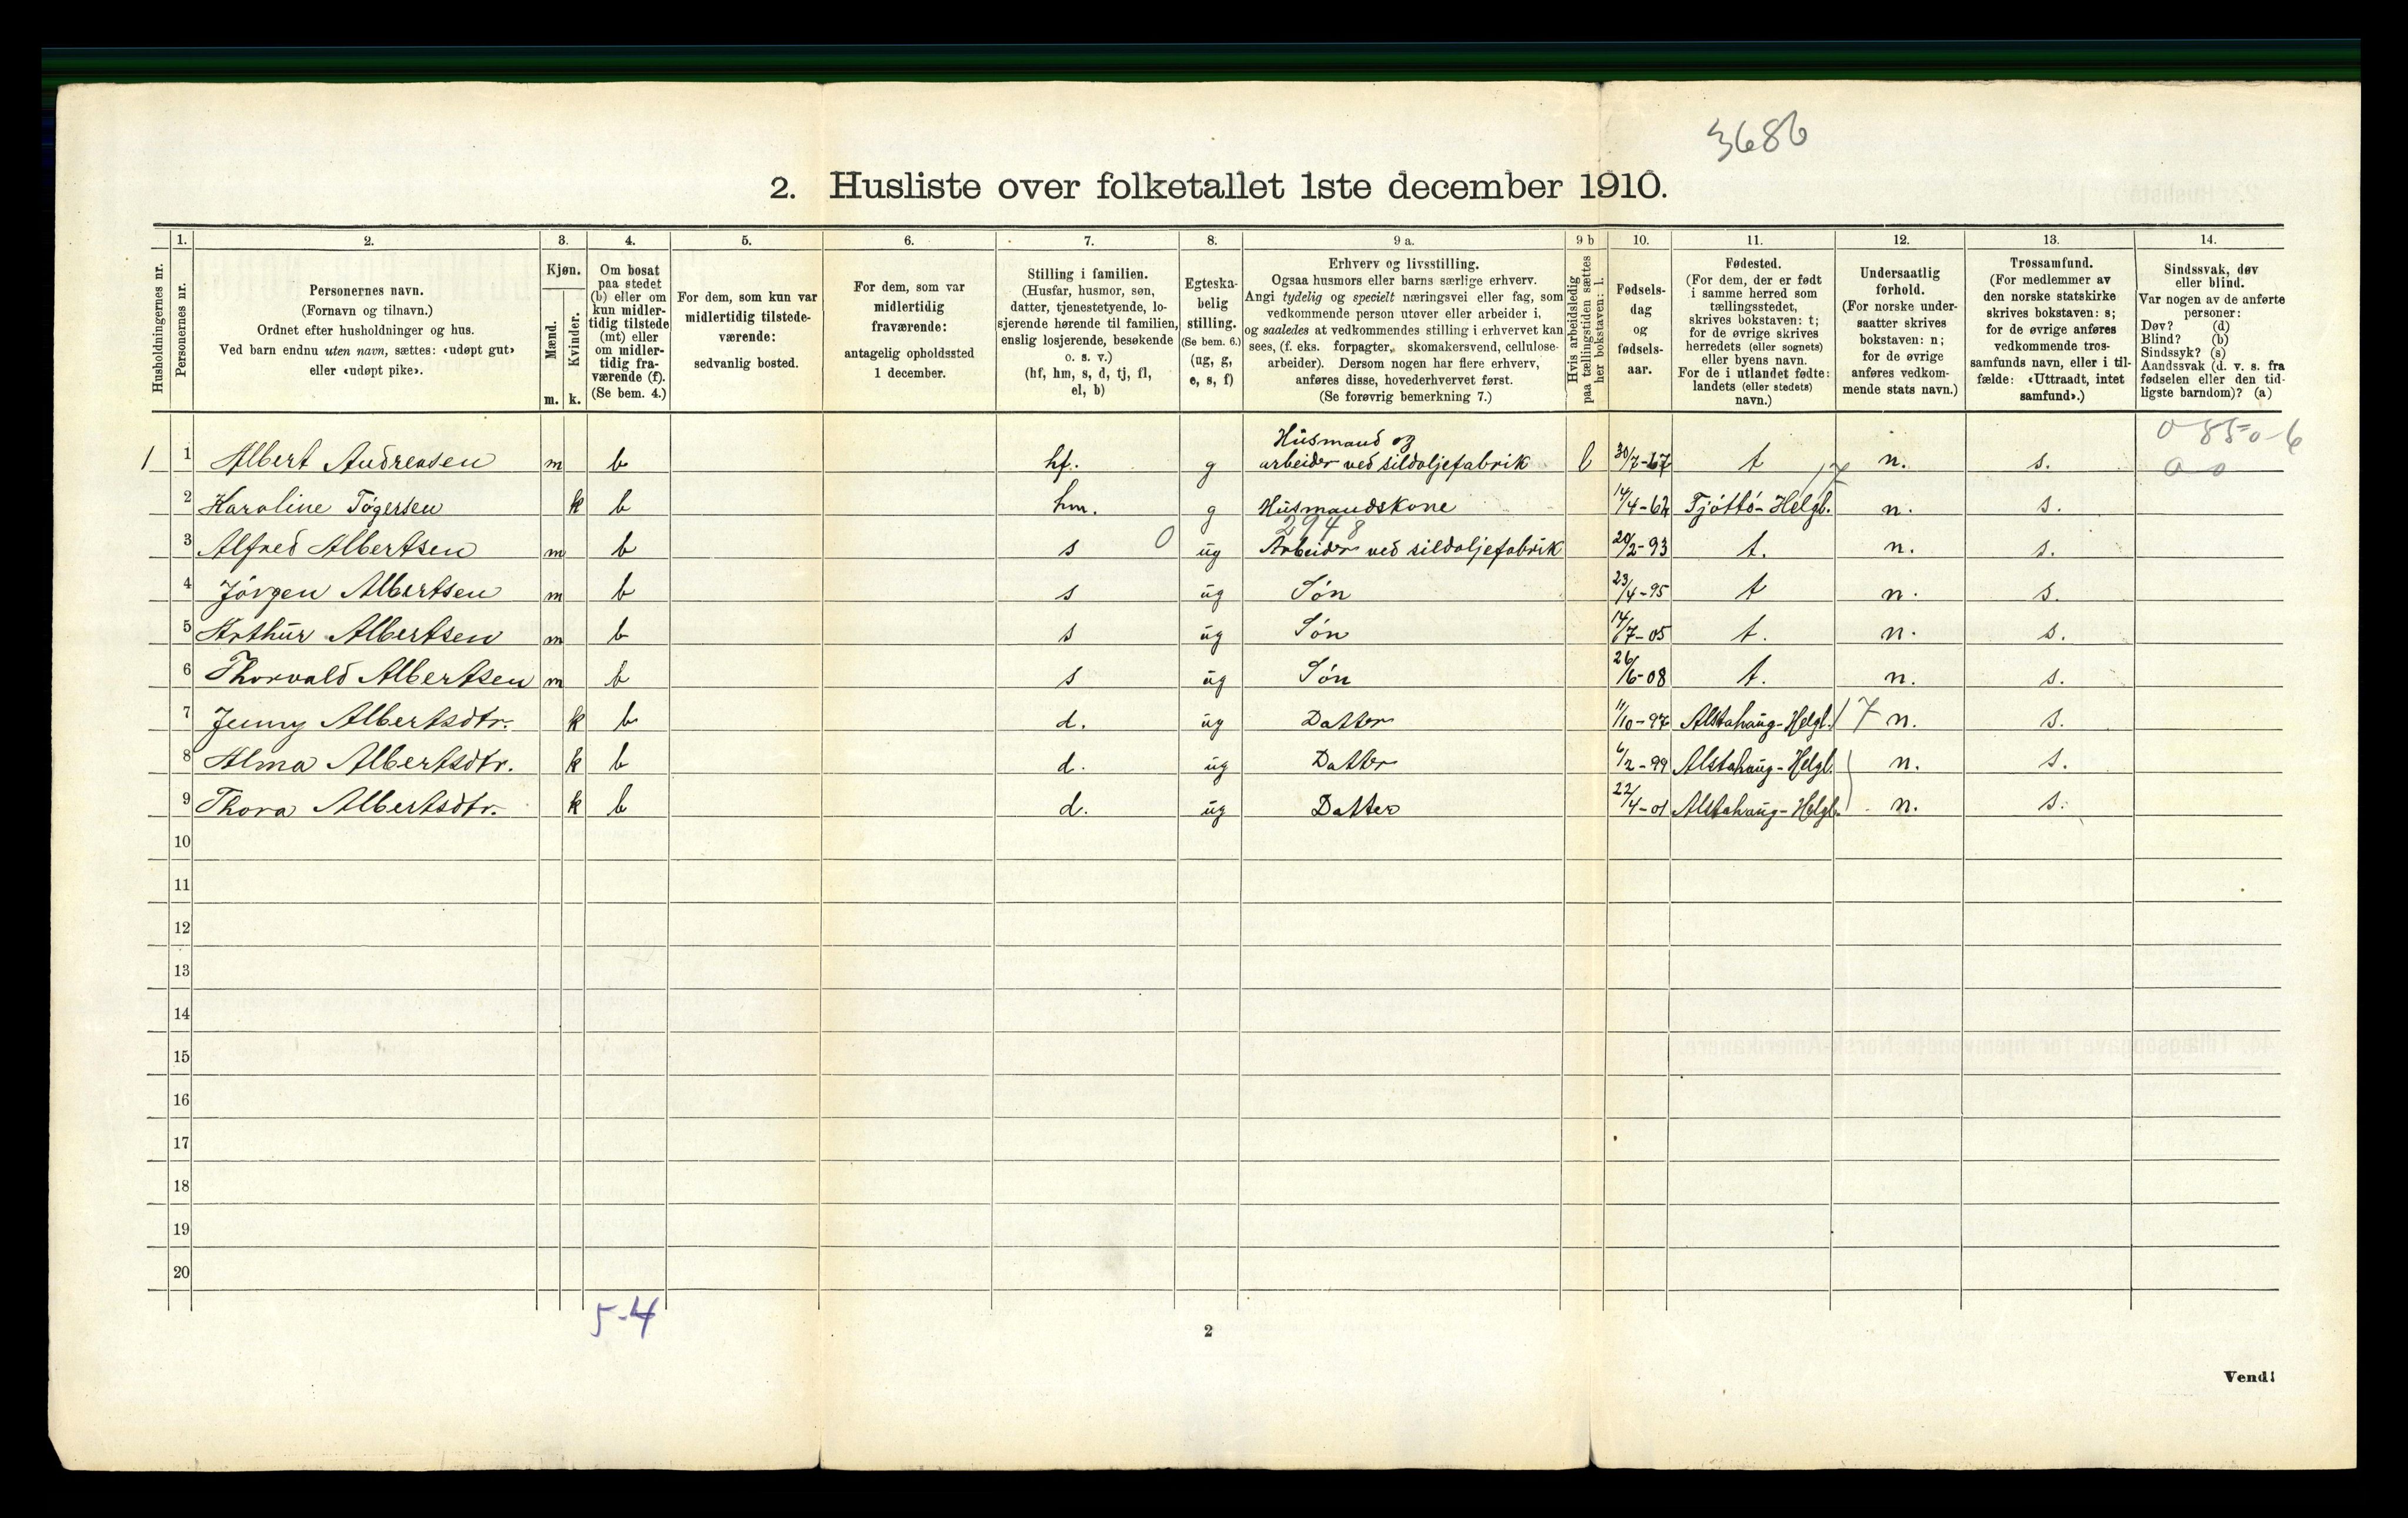 3686
2. Husliste over folketallet 1ste december 1910.
Husholdningernes nr.
1. Personernes nr.
2. Personernes navn. (Fornavn og tilnavn.) Ordnet efter husholdninger og hus. Ved barn endnu uten navn, sættes: «udøpt gut» eller «udøpt pike».
3. Kjøn. Mænd. m. Kvinder. k.
4. Om bosat paa stedet (b) eller om kun midler-tidig tilstede (mt) eller om midler-tidig fra-værende (f). (Se bem. 4.)
5. For dem, som kun var midlertidig tilstede-værende: sedvanlig bosted.
6. For dem, som var midlertidig fraværende: antagelig opholdssted 1 december.
7. Stilling i familien. (Husfar, husmor, søn, datter, tjenestetyende, lo-sjerende hørende til familien, enslig losjerende, besøkende o. s. v.) (hf, hm, s, d, tj, fl, el, b)
8. Egteska-belig stilling. (Se bem. 6.) (ug, g, e, s, f)
9 a. Erhverv og livsstilling. Ogsaa husmors eller barns særlige erhverv. Angi tydelig og specielt næringsvei eller fag, som vedkommende person utøver eller arbeider i, og saaledes at vedkommendes stilling i erhvervet kan sees, (f. eks. forpagter, skomakersvend, cellulose-arbeider). Dersom nogen har flere erhverv, anføres disse, hovederhvervet først. (Se forøvrig bemerkning 7.)
9 b Hvis arbeidsledig paa tællingstiden sættes her bokstaven: l.
10. Fødsels-dag og fødsels-aar.
11. Fødested. (For dem, der er født i samme herred som tællingsstedet, skrives bokstaven: t; for de øvrige skrives herredets (eller sognets) eller byens navn. For de i utlandet fødte: landets (eller stedets) navn.)
12. Undersaatlig forhold. (For norske under-saatter skrives bokstaven: n; for de øvrige anføres vedkom-mende stats navn.)
13. Trossamfund. (For medlemmer av den norske statskirke skrives bokstaven: s; for de øvrige anføres vedkommende tros-samfunds navn, eller i til-fælde: «Uttraadt, intet samfund».)
14. Sindssvak, døv eller blind. Var nogen av de anførte personer: Døv? (d) Blind? (b) Sindssyk? (s) Aandssvak (d. v. s. fra fødselen eller den tid-ligste barndom)? (a)
Husmand og
1 1 Albert Andreasen m b hf. g arbeider ved sildoljefabrik l 30/7-67 t n. s.
2 Karoline Tøgersen k b hm. g Husmandskone 14/4-62 Tjøttø-Helgl. 17 n. s.
2948
3 Alfred Albertsen m b s 0 ug Arbeider ved sildoljefabrik 20/2-93 t. n. s.
4 Jørgen Albertsen m b s ug Søn 23/4-95 t n. s.
5 Arthur Albertsen m b s ug Søn 14/7-05 t. n. s.
6 Thorvald Albertsen m b s ug Søn 26/6-08 t. n. s.
7 Jenny Albertsdtr. k b d. ug Datter 11/10-97 Alstahaug-Helgl. 17 n. s.
8 Alma Albertsdtr. k b d. ug Datter 6/2-99 Alstahaug-Helgl. n. s.
9 Thora Albertsdtr. k b d. ug Datter 22/4-01 Alstahaug-Helgl. n. s.
10
11
12
13
14
15
16
17
18
19
20
5-4
2
Vend!